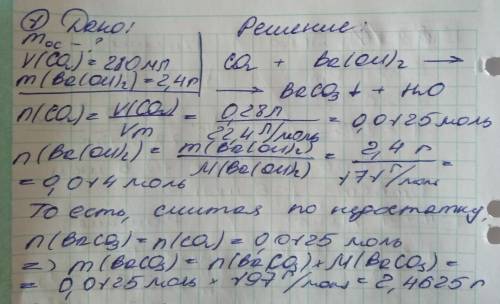 ① Дано: Решение:
mос – ?
V(CO₂) = 280 мл CO₂ + Ba(OH)₂ →
m(Ba(OH)₂) = 2,4 г → BaCO₃↓ + H₂O
n(CO₂) = V(CO₂)/Vm = 0,28 л/22,4 л/моль = 0,0125 моль
n(Ba(OH)₂) = m(Ba(OH)₂)/M(Ba(OH)₂) = 2,4 г/171 г/моль =
= 0,014 моль
То есть, считая по недостатку,
n(BaCO₃) = n(CO₂) = 0,0125 моль
=> m(BaCO₃) = n(BaCO₃) * M(BaCO₃) =
= 0,0125 моль * 197 г/моль = 2,4625 г